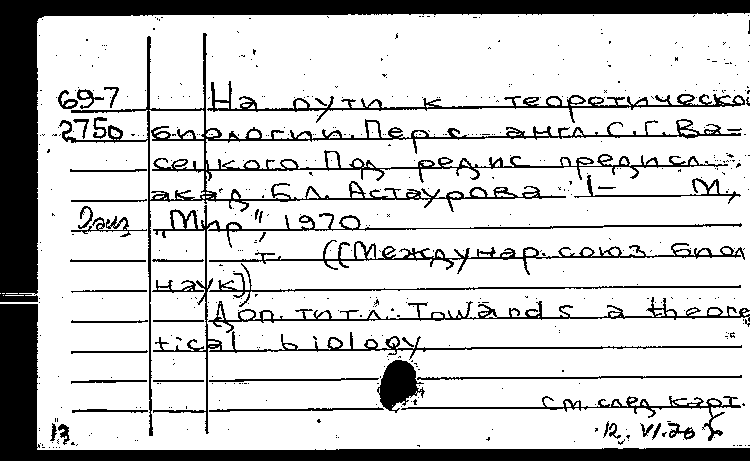 69-7 На пути к теоретической
2750 биологии. Пер с англ. С.Г. Ва=
сецкого. Под ред и с предисл.
акад. Б.Л. Астаурова 1- М.,
2 экз „Мир", 1970.
т. ([Междунар. союз биол
наук])
Доп. тит.л.: Towards a theore
tical biology.
См. след. карт.
13. 12. VI.70